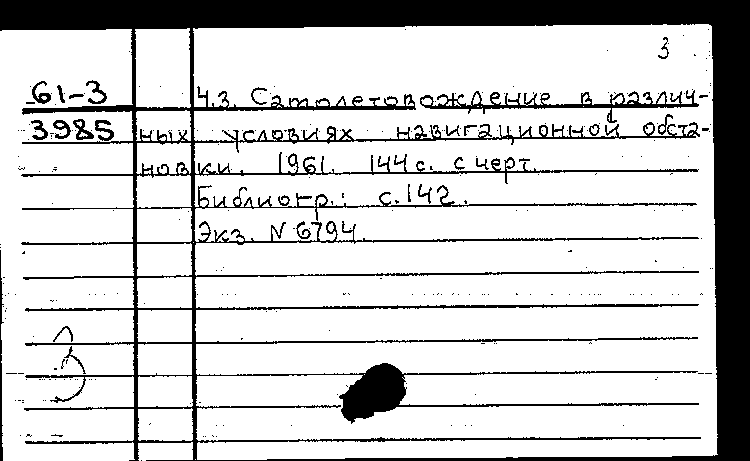 3
61-3
3985
Ч.3. Самолетовождение в различ-
ных условиях навигационной обста-
новки. 1961. 144 с. с черт.
Библиогр.: с. 142.
Экз. N 6794.
3